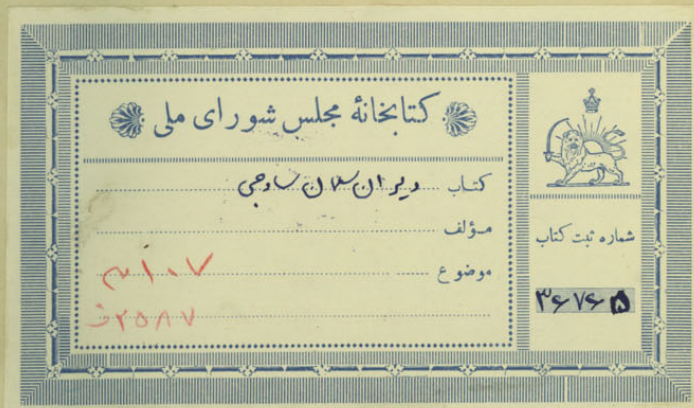 کتابخانهٔ مجلس شورای ملی
کتاب دیوان سلمان ساوجی
مؤلف
موضوع
شماره ثبت کتاب
۳۶۷۶۵